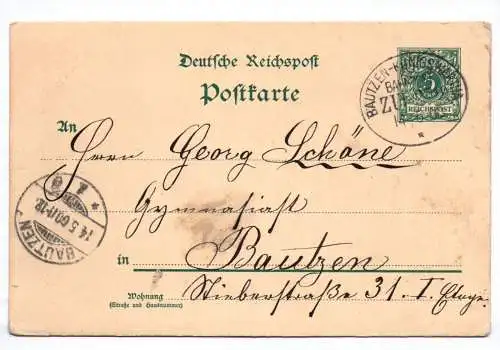 Deutsche Reichspost
Postkarte
BAUTZEN-KÖNIGSWARTHA
5
REICHSPOST
An
Herrn Georg Schöne
Gymnasiast
BAUTZEN
14.5.00.11-12.
in Bautzen
Wohnung
(Straße und Hausnummer)
Stieberstraße 31. I. Etage.